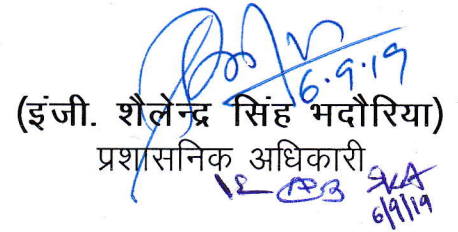 6.9.19
(इंजी. शैलेन्द्र सिंह भदौरिया)
प्रशासनिक अधिकारी
6/9/19